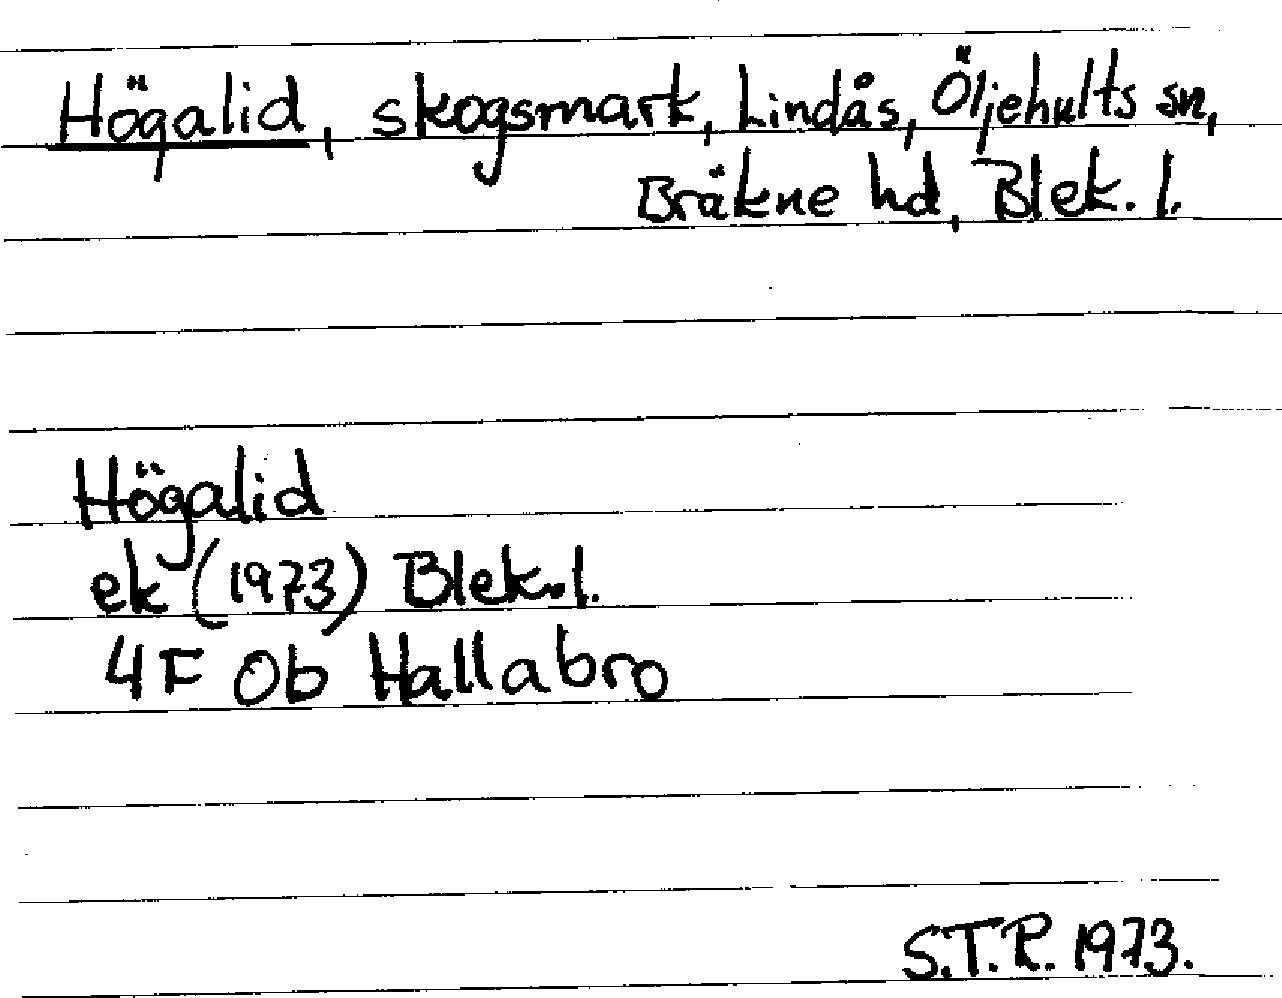 Högalid, skogsmark, Lindås, Öljehults sn,
Bräkne hd, Blek. l.
Högalid
ek (1973) Blek. l.
4F Ob Hallabro
S.T.R. 1973.